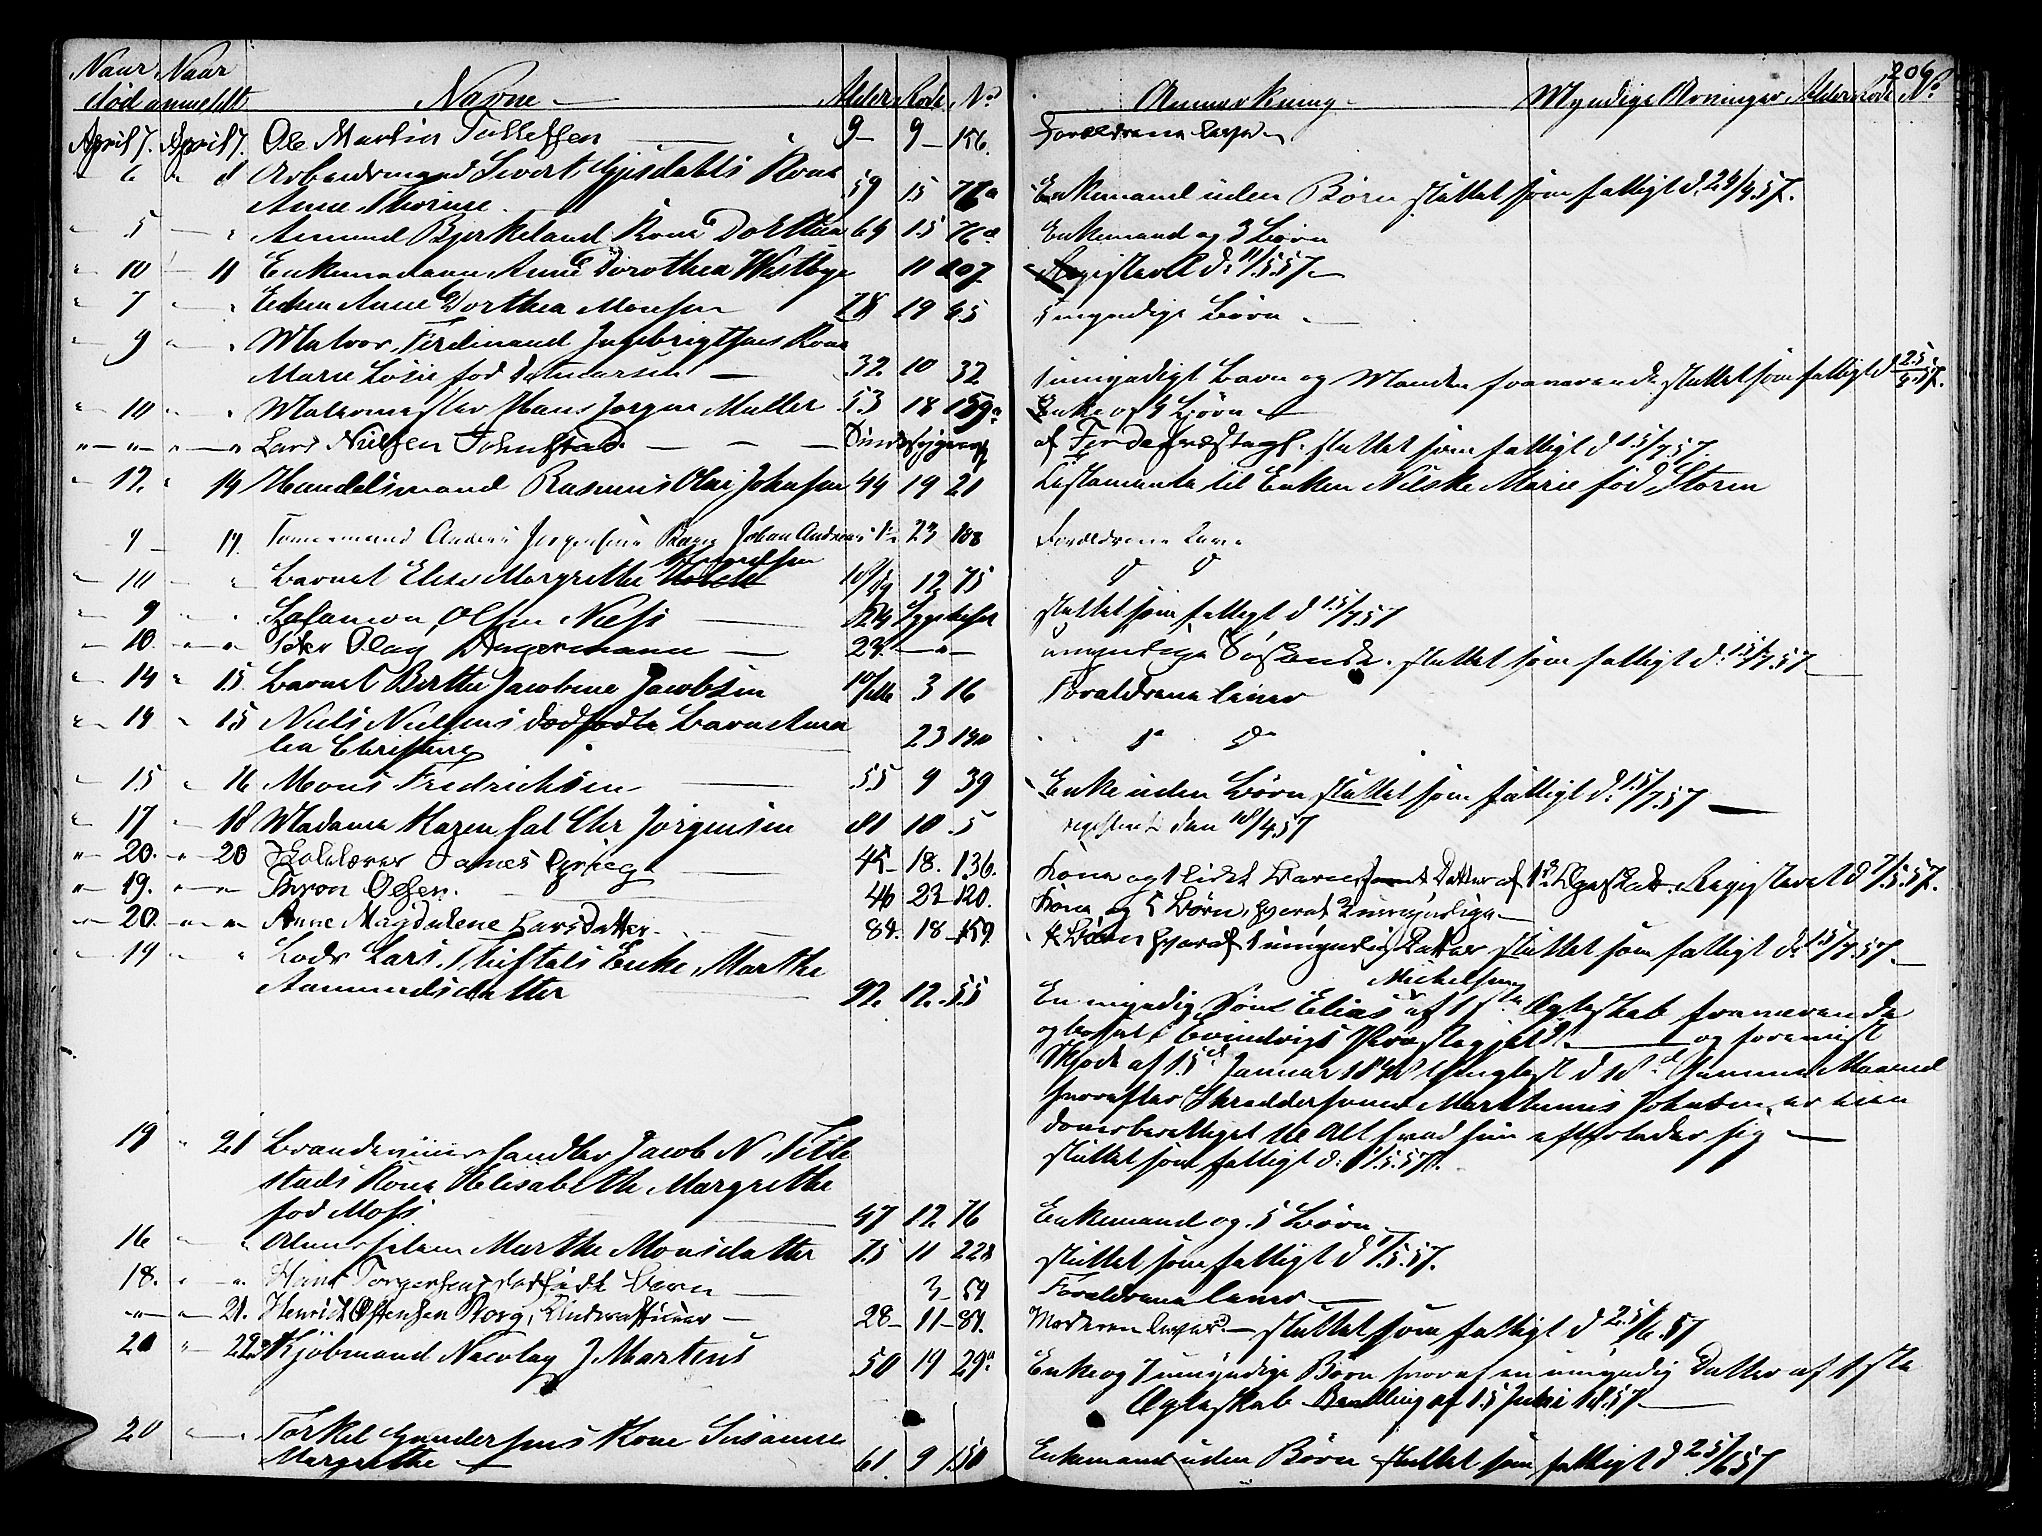 206
Naar Naar
død anmeldt Navne Alder Rode No Anmærkning Myndige Arvinger Alder Rode No
April 7. April 7. Ole Martin Tollefsen 9 9 156. Forældrene lever
6 d Arbeidsmand Sivert Gjisdahls Kone
Anne Thorine 59 15 76a Enkemand uden Børn sluttet som fattigt d. 24/4.57.
5 Amund Bjerkeland Kone Dorthea 64 15 76a Enkemand og 3 Børn
10 11 Enkemadame Anne Dorothea Westbye 11 107 Registeret d: 11/5.57
7 Enken Anne Dorthea Monsen 78 19 65 5 myndige Børn
9 Matros Ferdinand Ingebrigtsens Kone
Marie Lovise fød Detmarsen 32 10 32 1 umyndigt Barn og Manden fraværende sluttet som fattigt d 25/4.57.
10 Malermester Hans Jørgen Müller 53 18 159a Enke og 4 Børn
Lars Nielsen Tohnstad Sindssygeas. af Førde Præstegl. sluttet som fattigt d 15/7.57.
12. 14 Handelsmand Rasmus Olai Johnsen 44 19 21 Testamente til Enken Nilske Marie fød Storm
9 14. Tømmermand Anders Jørgensens Barn Johan Andreas 23 108 Forældrene leve
10 Barnet Elise Margrethe 10/dg 12 75 d d
9 Salamon Olsen Næss Sygehuset sluttet som fattigt d 15/7.57
10. Peder Olag Angermann 24. umyndige Søskende. sluttet som fattigt d: 15/7.57
14 15. Barnet Berthe Jacobine Jacobsen 10/Mdr 3 16 Forældrene lever
14 15 Niels Nielsens dødfødte Barn Ama
lia Christine 23 190 d d
15 16 Mons Fredrichsen 55 9 39 Enke uden Børn sluttet som fattigt d: 15/7.57
17 18 Madame Karen sal Chr Jørgensen 81 10 5 registeret den 18/4.57
20. 20 Skolelærer James Grieg 45 18. 136. Kone og 1 lidet Barn samt Datter af 1ste Ægteskab. Registeret d 7/5.57.
19. Thron Olsen. 40 23 120. Kone og 5 Børn, hvoraf 3 umyndige
20. Anne Magdalene Larsdatter 84. 18 159. 4 Børn hvoraf 1 umyndig Datter sluttet som fattigt d: 15/7.57.
19 Lods Lars Thistals Enke Marthe
Aamundsdatter 92. 12. 55 En myndig Søn Elias Michelsen af 1ste Ægteskab fraværende
og bosat i Evindvigs Præstegjeld. og foreviist
Skjøde af 15de Januar 1848 tinglæst d 18de samme Maaned
hvorefter Skreddersvend Marthinus Johnsen, er eien
domsberettiget til Alt hvad hun efterlader sig
sluttet som fattigt d: 1/5.57.
19 21 Brændeviinshandler Jacob N. Title
stads Kone Elisabeth Margrethe
fød Moss 47 12 76 Enkemand og 5 Børn
16 Almisselem Marthe Monsdatter 75 11 228 sluttet som fattigt d 1/5.57.
18. Hans Torgersens dødfødt Barn 3 54 Forældrene lever
21. Henrich Ottensen Borg, Underofficeer 28 11 84. Moderen lever. sluttet som fattigt d 25/6.57
20 22 Kjøbmand Nicolay J. Martens 50 19 29a Enke og 7 umyndige Børn hvoraf en umyndig Datter af 1ste
Ægteskab Bevilling af 15 Juni 1857
20 Torkel Gundersens Kone Susanne
Margrethe 61. 9 150 Enkemand uden Børn sluttet som fattigt d 25/6.57